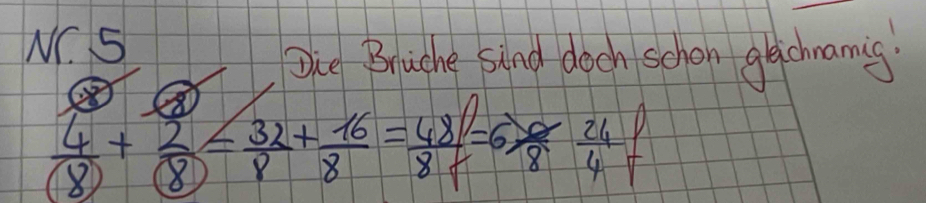 Nr. 5
Die Brüche sind doch schon gleichnamig!
8 8
4/8 + 2/8 = 32/8 + 16/8 = 48/8 f = 6 8 24/4 f